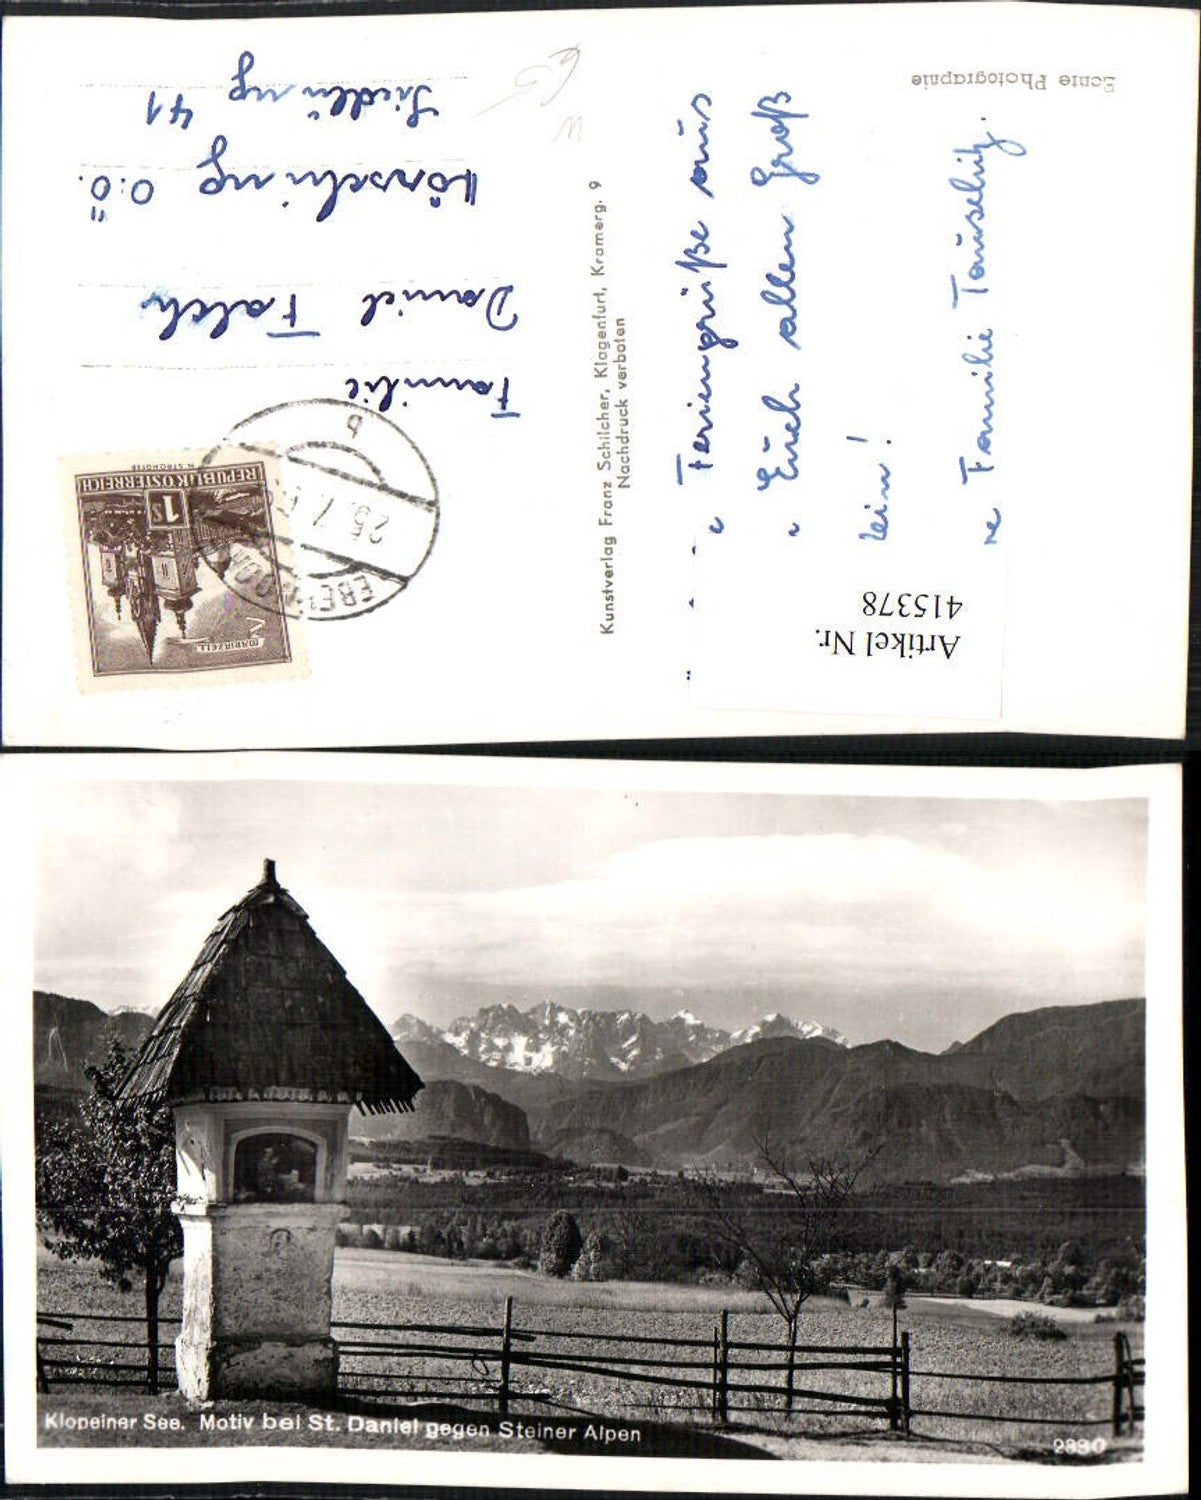 Echte Photographie
Feriengrüße aus
Euch allen Groß
lein!
Familie Tauschitz.
Artikel Nr.
415378
Kunstverlag Franz Schilcher, Klagenfurt, Kramerg. 9
Nachdruck verboten
REPUBLIK ÖSTERREICH
1S
MARIAZELL
EBERNDORF
25.7.6
b
Familie
Daniel Falch
Hörsching O.Ö.
Siedlung 41
Klopeiner See. Motiv bei St. Daniel gegen Steiner Alpen
2330